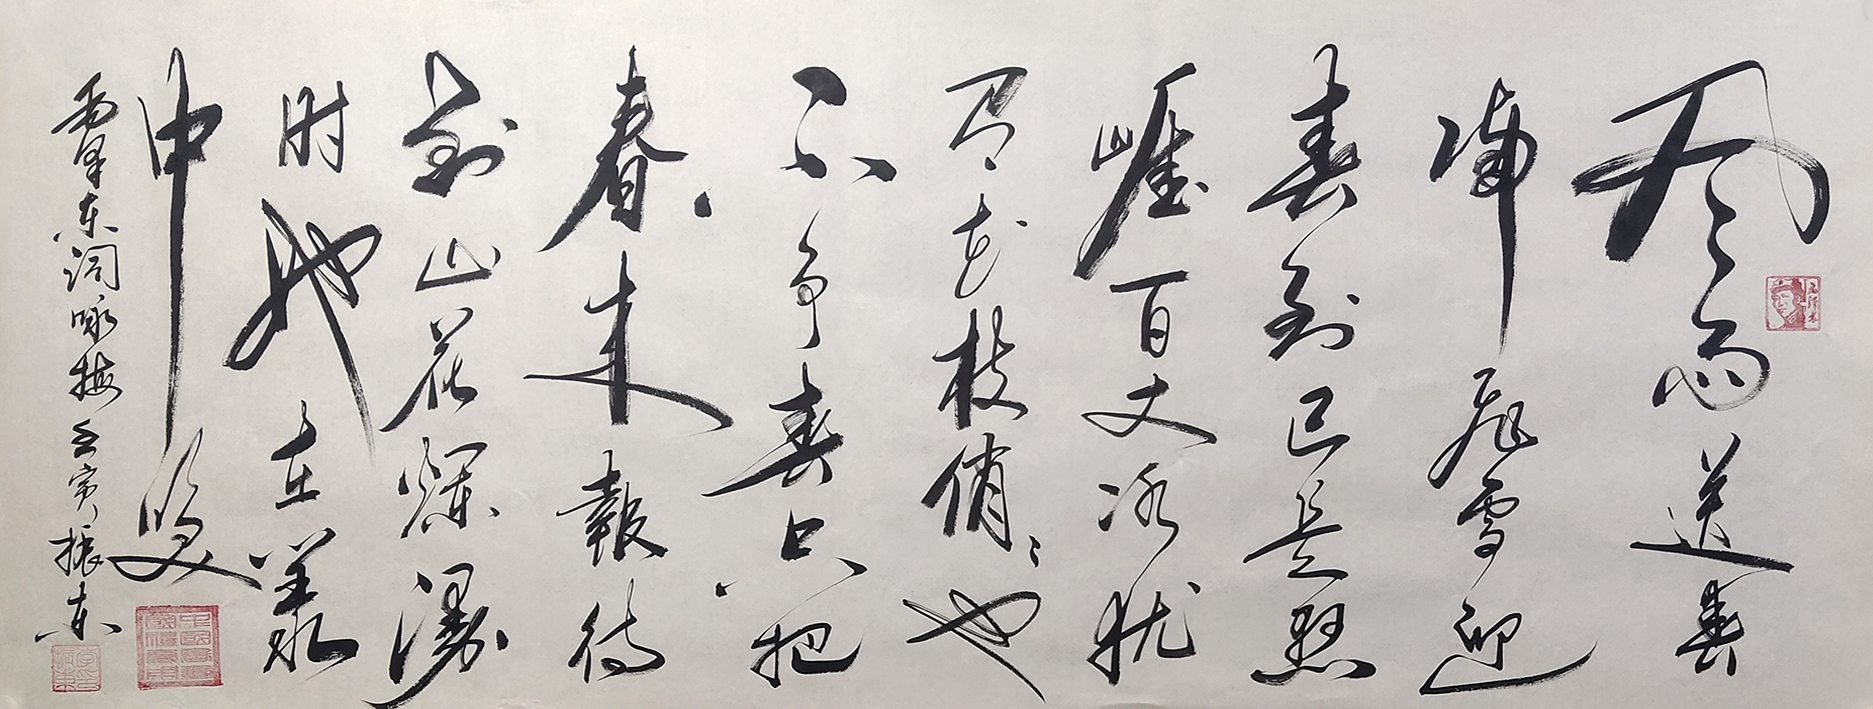 风雨送春
归飞雪迎
春到已是悬
崖百丈冰犹
有花枝俏〻也
不争春只把
春来報待
到山花烂漫
时她在叢
中笑
毛泽东词咏梅 壬寅振东